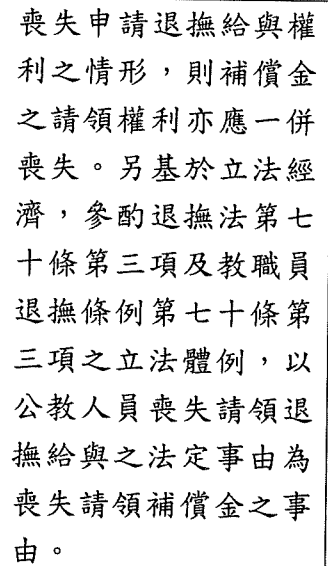 喪失申請退撫給與權
利之情形，則補償金
之請領權利亦應一併
喪失。另基於立法經
濟，參酌退撫法第七
十條第三項及教職員
退撫條例第七十條第
三項之立法體例，以
公教人員喪失請領退
撫給與之法定事由為
喪失請領補償金之事
由。